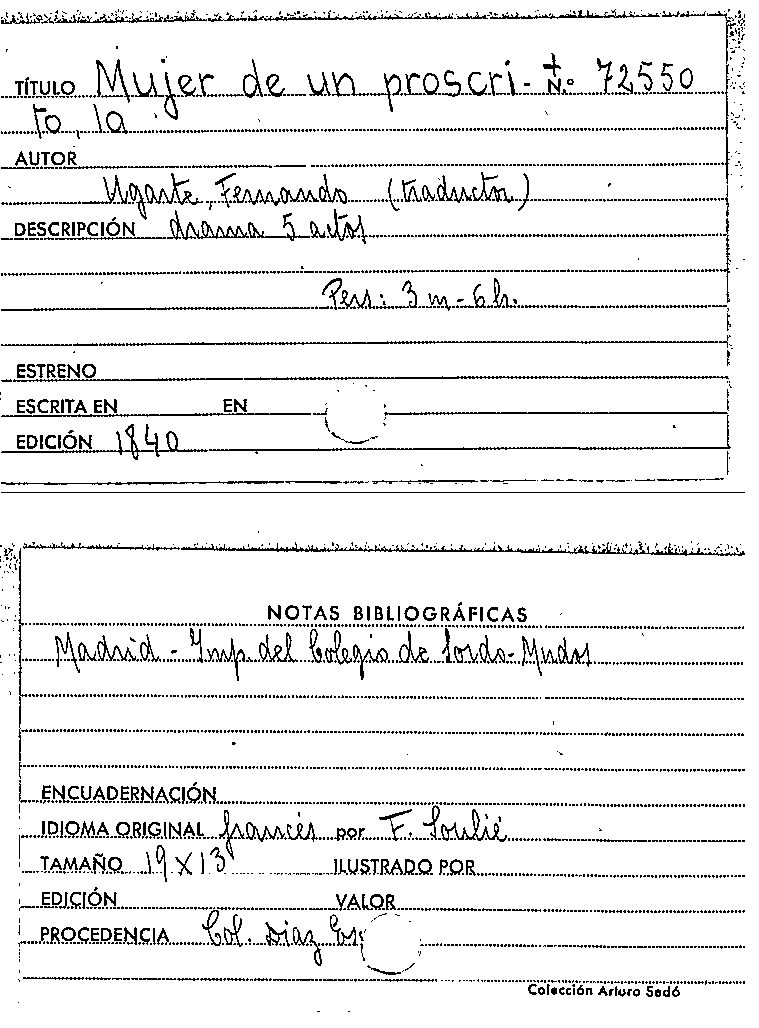 TÍTULO Mujer de un proscri- + N.º 72550
to, la
AUTOR
Ugarte, Fernando (traductor)
DESCRIPCIÓN drama 5 actos
Pers: 3 m - 6 h.
ESTRENO
ESCRITA EN EN
EDICIÓN 1840
NOTAS BIBLIOGRÁFICAS
Madrid - Imp. del Colegio de Sordo-Mudos
ENCUADERNACIÓN
IDIOMA ORIGINAL francés por F. Soulié
TAMAÑO 19 x 13 ILUSTRADO POR
EDICIÓN VALOR
PROCEDENCIA Col. Diaz
Colección Arturo Sedó